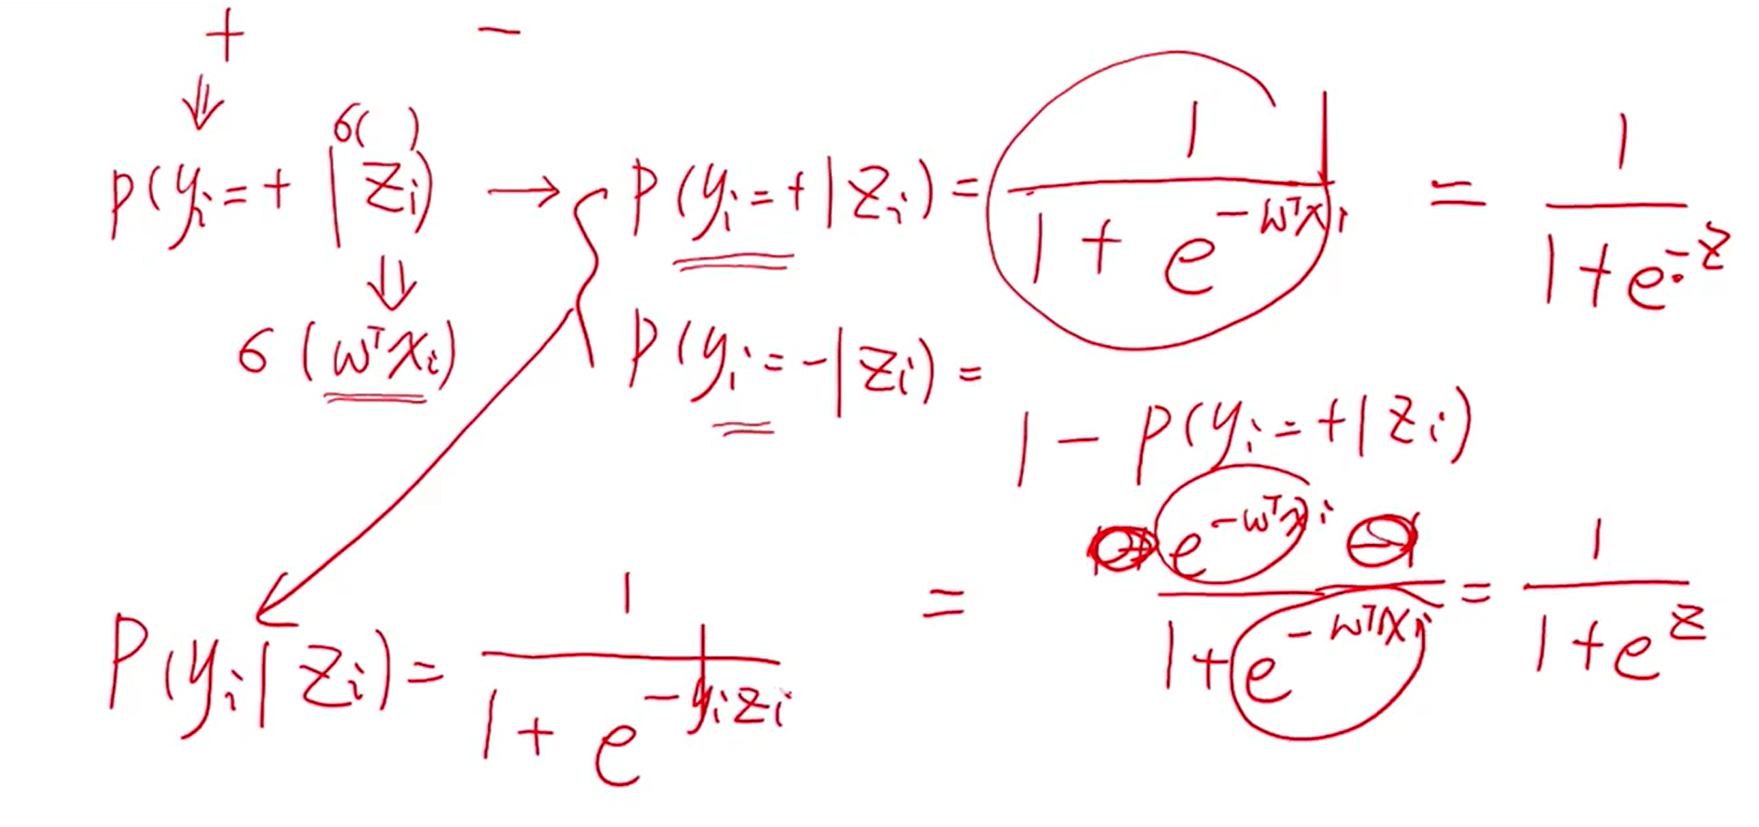 + −
⇓
6( )
P(yᵢ=+ | zᵢ) → { P(yᵢ=+|zᵢ) = 1 / (1 + e^(−wᵀxᵢ)) = 1 / (1+e^(−z))
⇓
6 (wᵀxᵢ)
P(yᵢ=−|zᵢ) =
1 − P(yᵢ=+|zᵢ)
= e^(−wᵀxᵢ) / (1+e^(−wᵀxᵢ)) = 1 / (1+e^z)
P(yᵢ|zᵢ) = 1 / (1 + e^(−yᵢzᵢ))